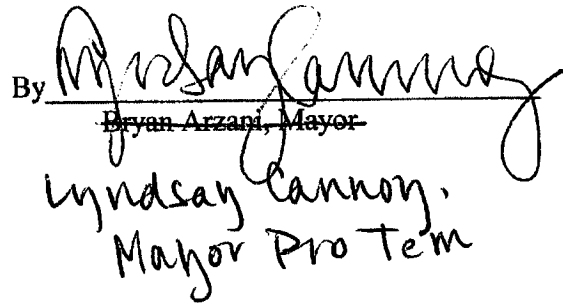 By Lyndsay Cannoy
Bryan Arzani, Mayor
Lyndsay Cannoy,
Mayor Pro Tem